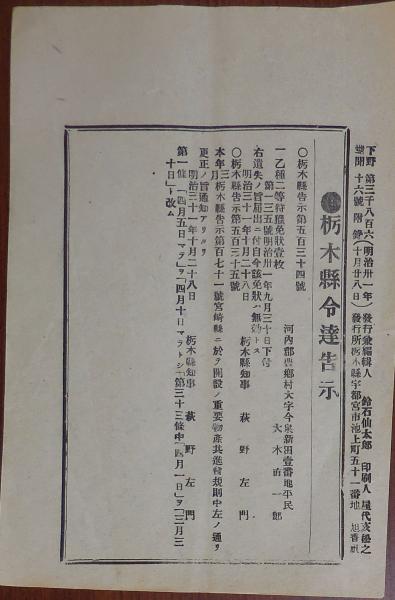 下野新聞 第三千八百六十六號 附錄 (明治卅一年十月廿八日) 發行兼編輯人 鈴石仙太郎 印刷人 屋代亥
發行所栃木縣宇都宮市池上町五十一番地
栃木縣令達告示
〇栃木縣告示第五百三十四號
河內郡豊鄕村大字今泉新田壹番地平民
大木
一乙種二等 免狀壹枚
第一三五號明治卅一年九月三十日下付
右遺失ノ旨屆出ニ付自今該免狀ハ無効トス
明治三十一年十月二十八日 栃木縣知事 萩野左門
〇栃木縣告示第五百三十五號
本年三月栃木縣告示第百七十一號宮崎縣ニ於テ開設ノ重要物產共進會規則中左ノ通リ
更正ノ旨通知アリタリ
明治三十一年十月二十八日 栃木縣知事 萩野左門
第一條「四月五日マテ」ヲ「四月十日マテトシ」第三十三條中「四月一日」ヲ「三月三
十日」ト改ム